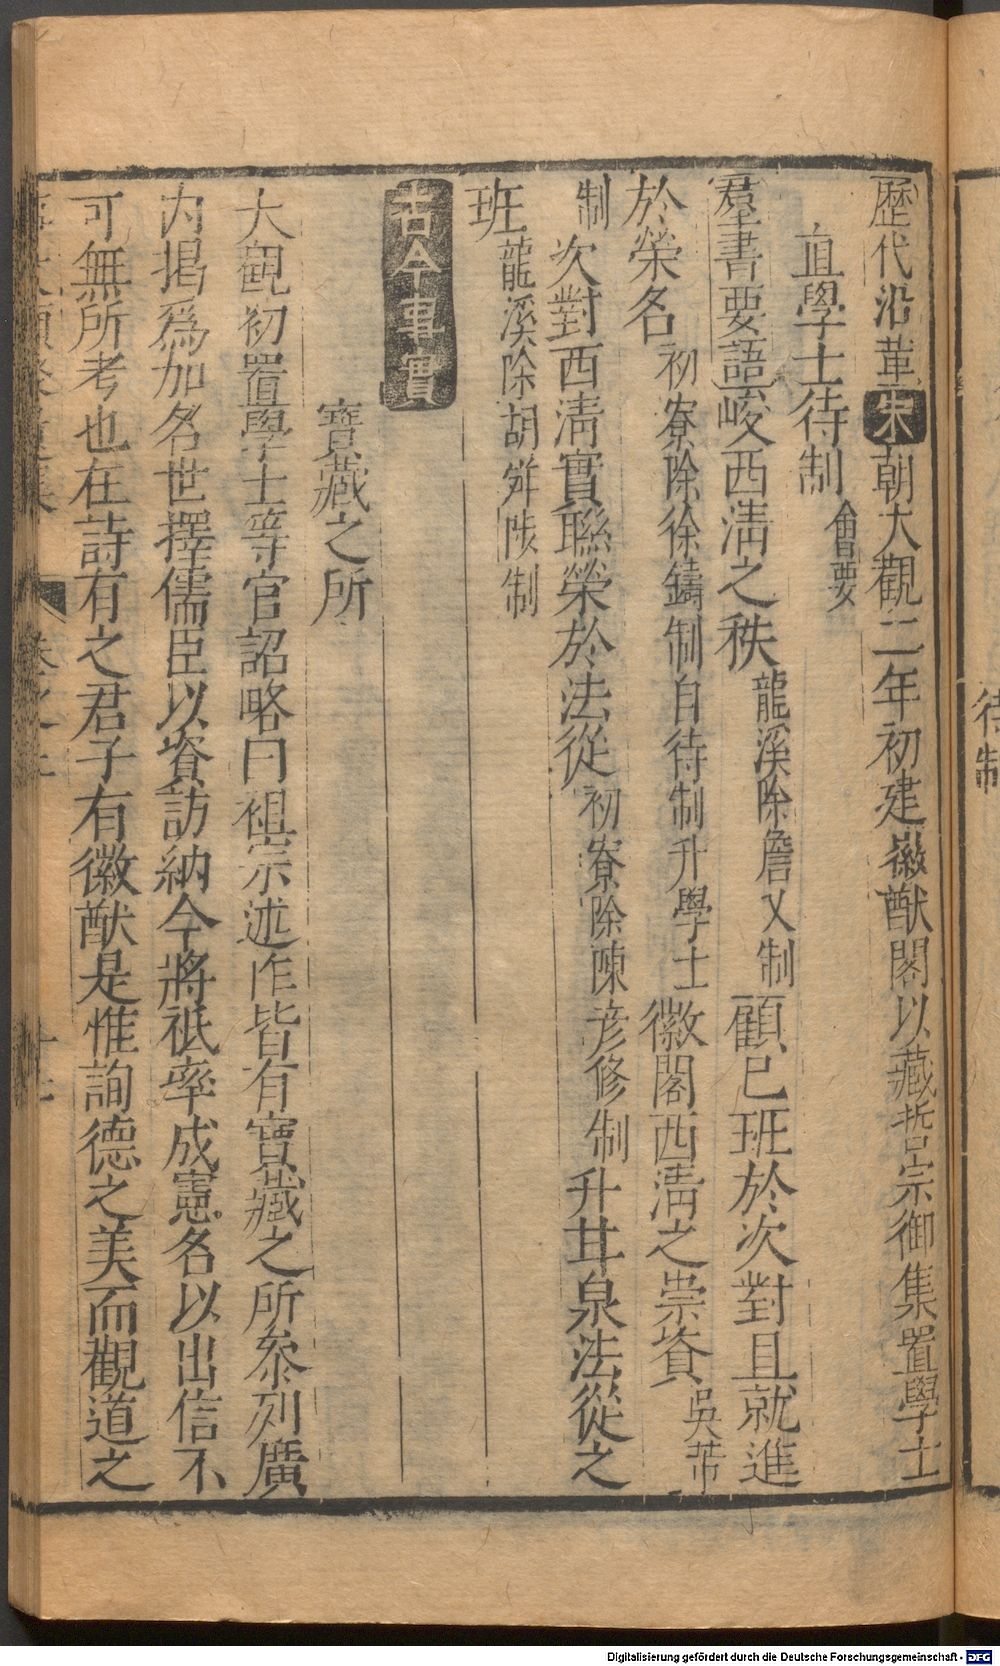 歷代沿革宋朝大觀二年初建徽猷閣以藏哲宗御集置學士
直學士待制會要
羣書要語峻西淸之秩龍溪除詹乂制顧已班於次對且就進
於榮名初寮除徐鑄制自待制升學士徽閣西淸之崇資吳芾
制次對西淸實聯榮於法從初寮除陳彦修制升甘泉法從之
班龍溪除胡舜陟制
古今事實
寶藏之所
大觀初置學士等官詔略曰祖宗述作皆有寶藏之所叅列廣
内揭爲加名世擇儒臣以資訪納今將祇率成憲名以出信不
可無所考也在詩有之君子有徽猷是惟詢德之美而觀道之
待制
Digitalisierung gefördert durch die Deutsche Forschungsgemeinschaft - DFG